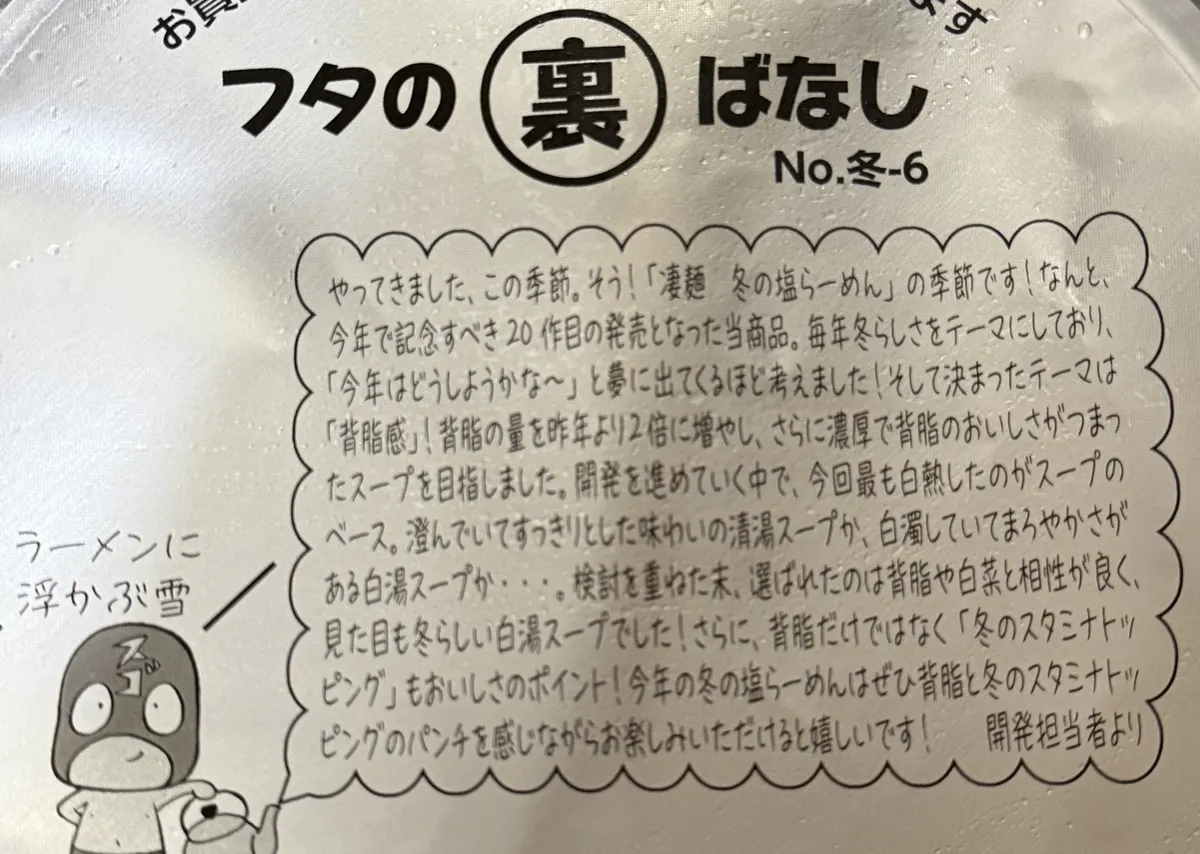 お買
ます
フタの裏ばなし
No.冬-6
やってきました、この季節。そう!「凄麺 冬の塩らーめん」の季節です!なんと、
今年で記念すべき20作目の発売となった当商品。毎年冬らしさをテーマにしており、
「今年はどうしようかな～」と夢に出てくるほど考えました!そして決まったテーマは
「背脂感」!背脂の量を昨年より2倍に増やし、さらに濃厚で背脂のおいしさがつまっ
たスープを目指しました。開発を進めていく中で、今回最も白熱したのがスープの
ベース。澄んでいてすっきりとした味わいの清湯スープか、白濁していてまろやかさが
ある白湯スープか・・・。検討を重ねた末、選ばれたのは背脂や白菜と相性が良く、
見た目も冬らしい白湯スープでした!さらに、背脂だけではなく「冬のスタミナトッ
ピング」もおいしさのポイント!今年の冬の塩らーめんはぜひ背脂と冬のスタミナトッ
ピングのパンチを感じながらお楽しみいただけると嬉しいです! 開発担当者より
ラーメンに
浮かぶ雪